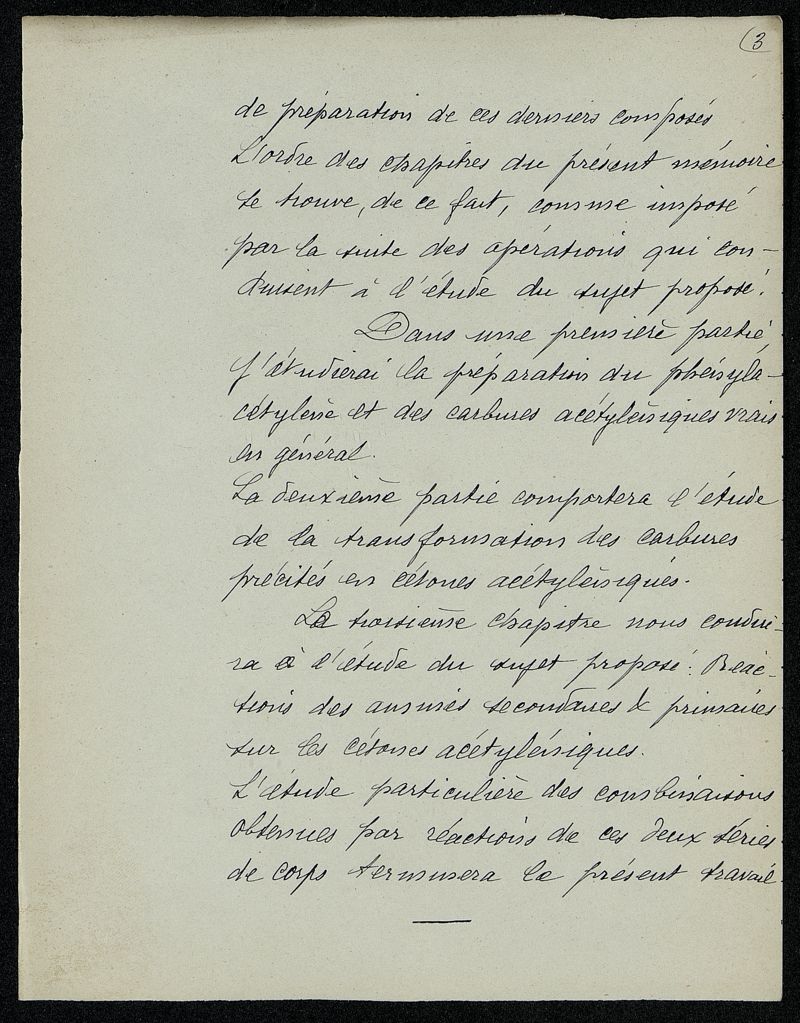 (3
de préparation de ces derniers composés
L'ordre des chapitres du présent mémoire
se trouve, de ce fait, comme imposé
par la suite des opérations qui con-
duisent à l'étude du sujet proposé.
Dans une première partie,
j'étudierai la préparation du phényla-
cétylène et des carbures acétyléniques vrais
en général.
La deuxième partie comportera l'étude
de la transformation des carbures
précités en cétones acétyléniques.
Le troisième chapitre nous condui-
ra à l'étude du sujet proposé: Réac-
tions des amines secondaires & primaires
sur les cétones acétyléniques.
L'étude particulière des combinaisons
obtenues par réactions de ces deux séries
de corps terminera le présent travail.